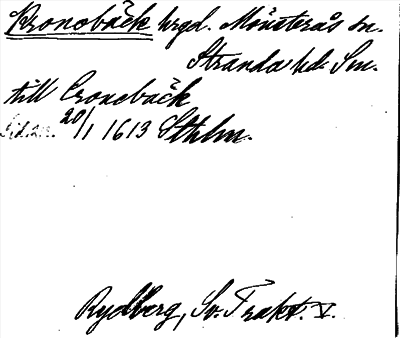 Kronobäck hrgd. Mönsterås sn.
Stranda hd. Sm.
till Cronebäck
20/1 1613 Sthlm.
Rydberg, Sv. Trakt. V.